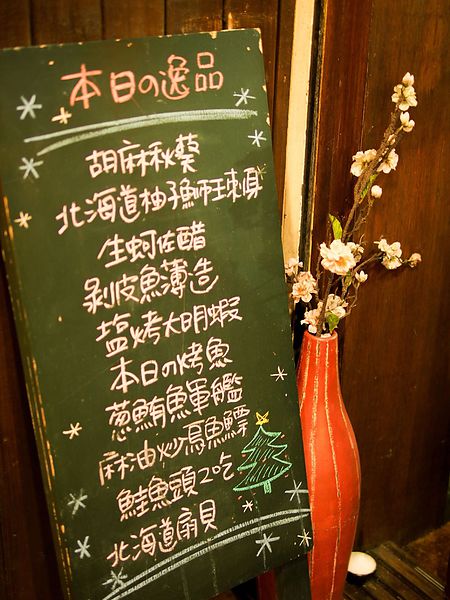 本日の逸品
胡麻秋葵
北海道柚子鰤王刺身
生蚵佐醋
剥皮魚薄造
塩烤大明蝦
本日の烤魚
葱鮪魚軍艦
麻油炒烏魚鰾
鮭魚頭2吃
北海道扇貝